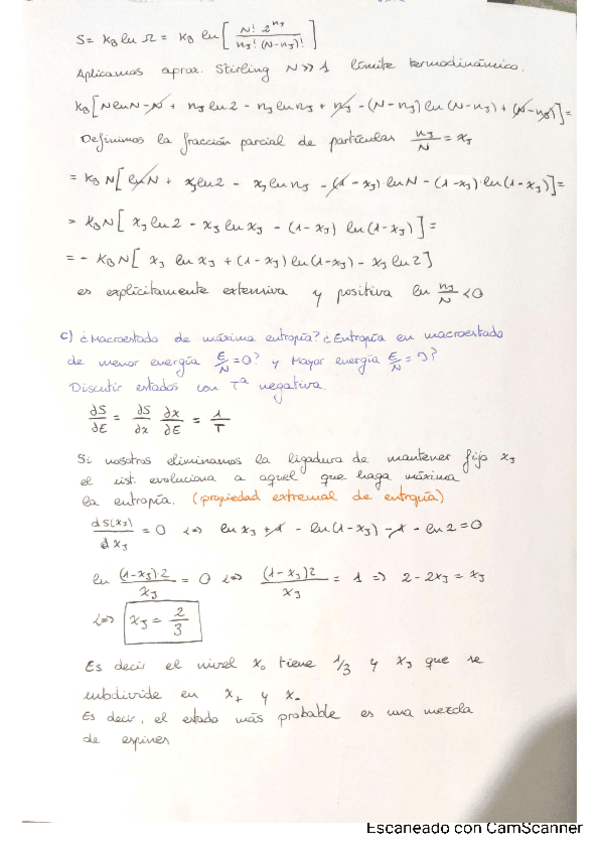 S = K_B ln Ω = K_B ln [ N! 2^{n_J} / n_J! (N-n_J)! ]
Aplicamos aprox. Stirling N>>1 límite termodinámico.
K_B [ N ln N - N + n_J ln 2 - n_J ln n_J + n_J - (N-n_J) ln (N-n_J) + (N-n_J) ] =
Definimos la fracción parcial de partículas n_J/N = x_J
= K_B N [ ln N + x_J ln 2 - x_J ln n_J - (1-x_J) ln N - (1-x_J) · ln (1-x_J) ] =
= K_B N [ x_J ln 2 - x_J ln x_J - (1-x_J) ln (1-x_J) ] =
= - K_B N [ x_J ln x_J + (1-x_J) ln (1-x_J) - x_J ln 2 ]
es explícitamente extensiva y positiva ln n_J/N < 0
c) ¿Macroestado de máxima entropía? ¿Entropía en macroestado
de menor energía E/N = 0? y Mayor energía E/N = J?
Discutir estados con Tª negativa.
∂S/∂E = ∂S/∂x ∂x/∂E = 1/T
Si nosotros eliminamos la ligadura de mantener fijo x_J
el sist. evoluciona a aquel que haga máxima
la entropía. (propiedad extremal de entropía)
dS(x_J)/dx_J = 0 <=> ln x_J + 1 - ln (1-x_J) - 1 - ln 2 = 0
ln (1-x_J)·2 / x_J = 0 <=> (1-x_J)2 / x_J = 1 => 2 - 2x_J = x_J
<=> x_J = 2/3
Es decir el nivel x_0 tiene 1/3 y x_J que se
subdivide en x_+ y x_-
Es decir, el estado más probable es una mezcla
de espines
Escaneado con CamScanner